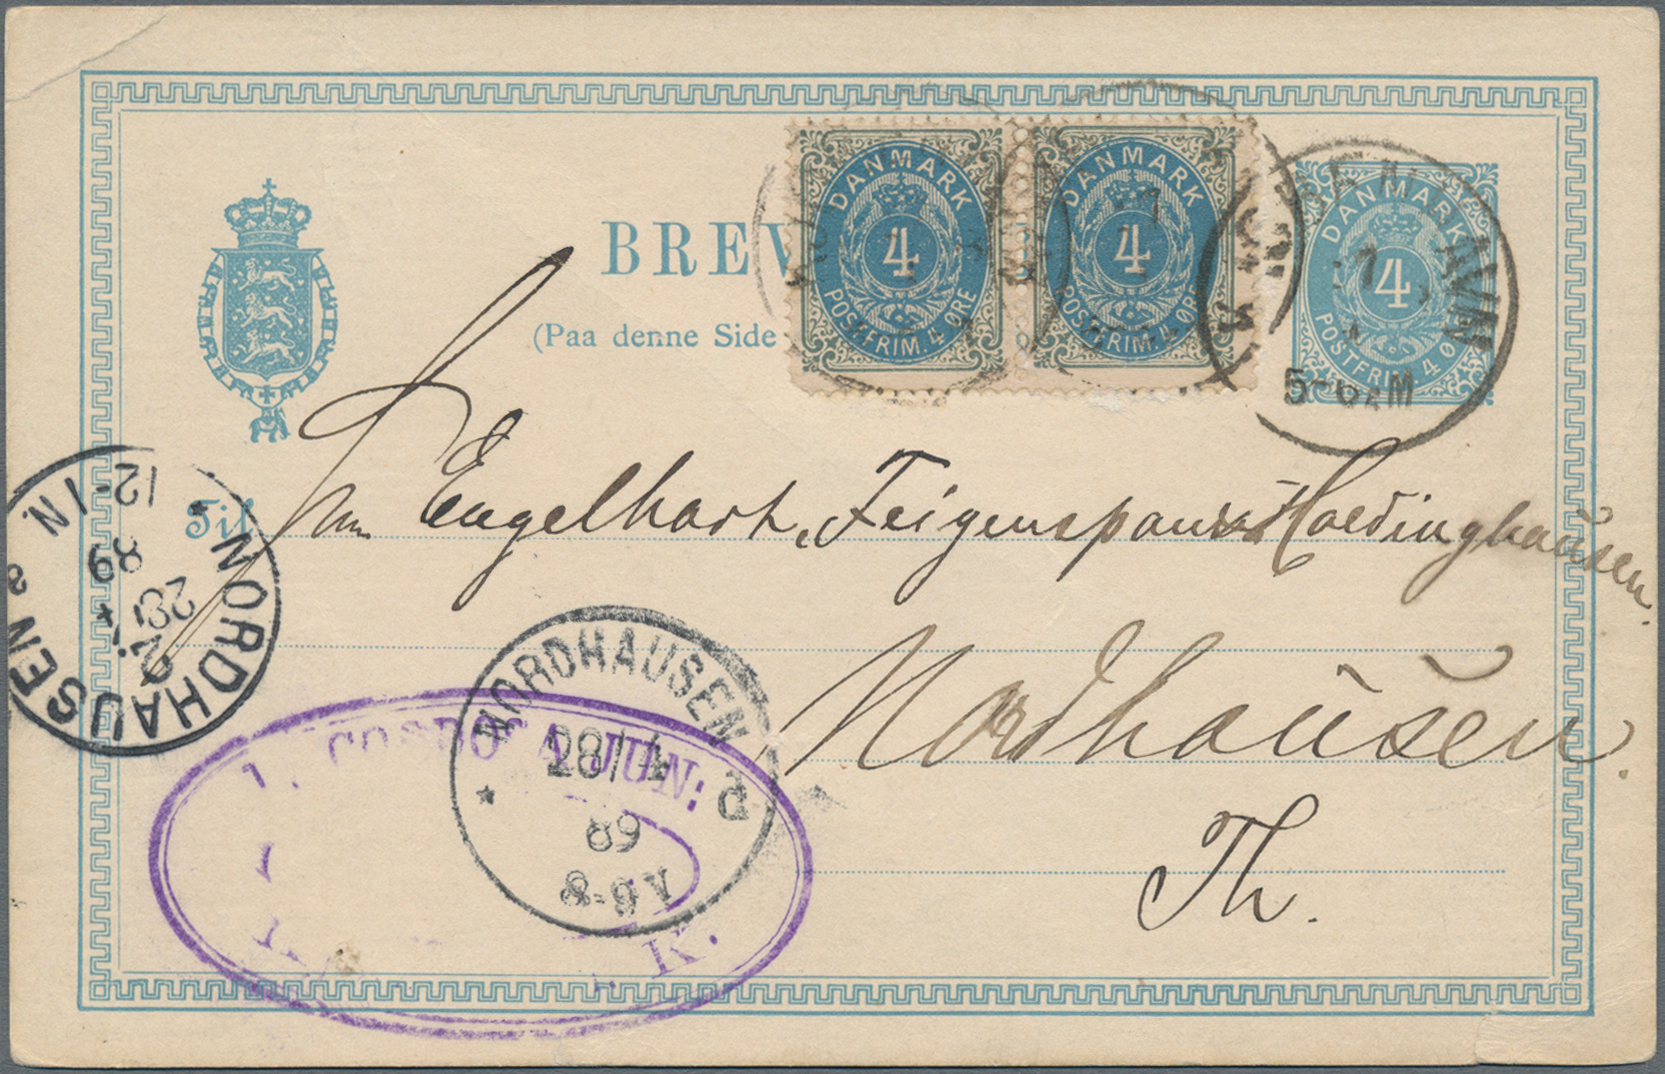 BREV
(Paa denne Side
DANMARK
4
POSTFRIM. 4 ØRE
DANMARK
4
POSTFRIM. 4 ØRE
DANMARK
4
POSTFRIM. 4 ØRE
5-6 EM
Til
Engelhart, Feigenspan Holdinghausen.
Nordhausen
Th.
NORDHAUSEN
28/4
89
12-1N
NORDHAUSEN
28/4
89
8-9V
JUN:
K.